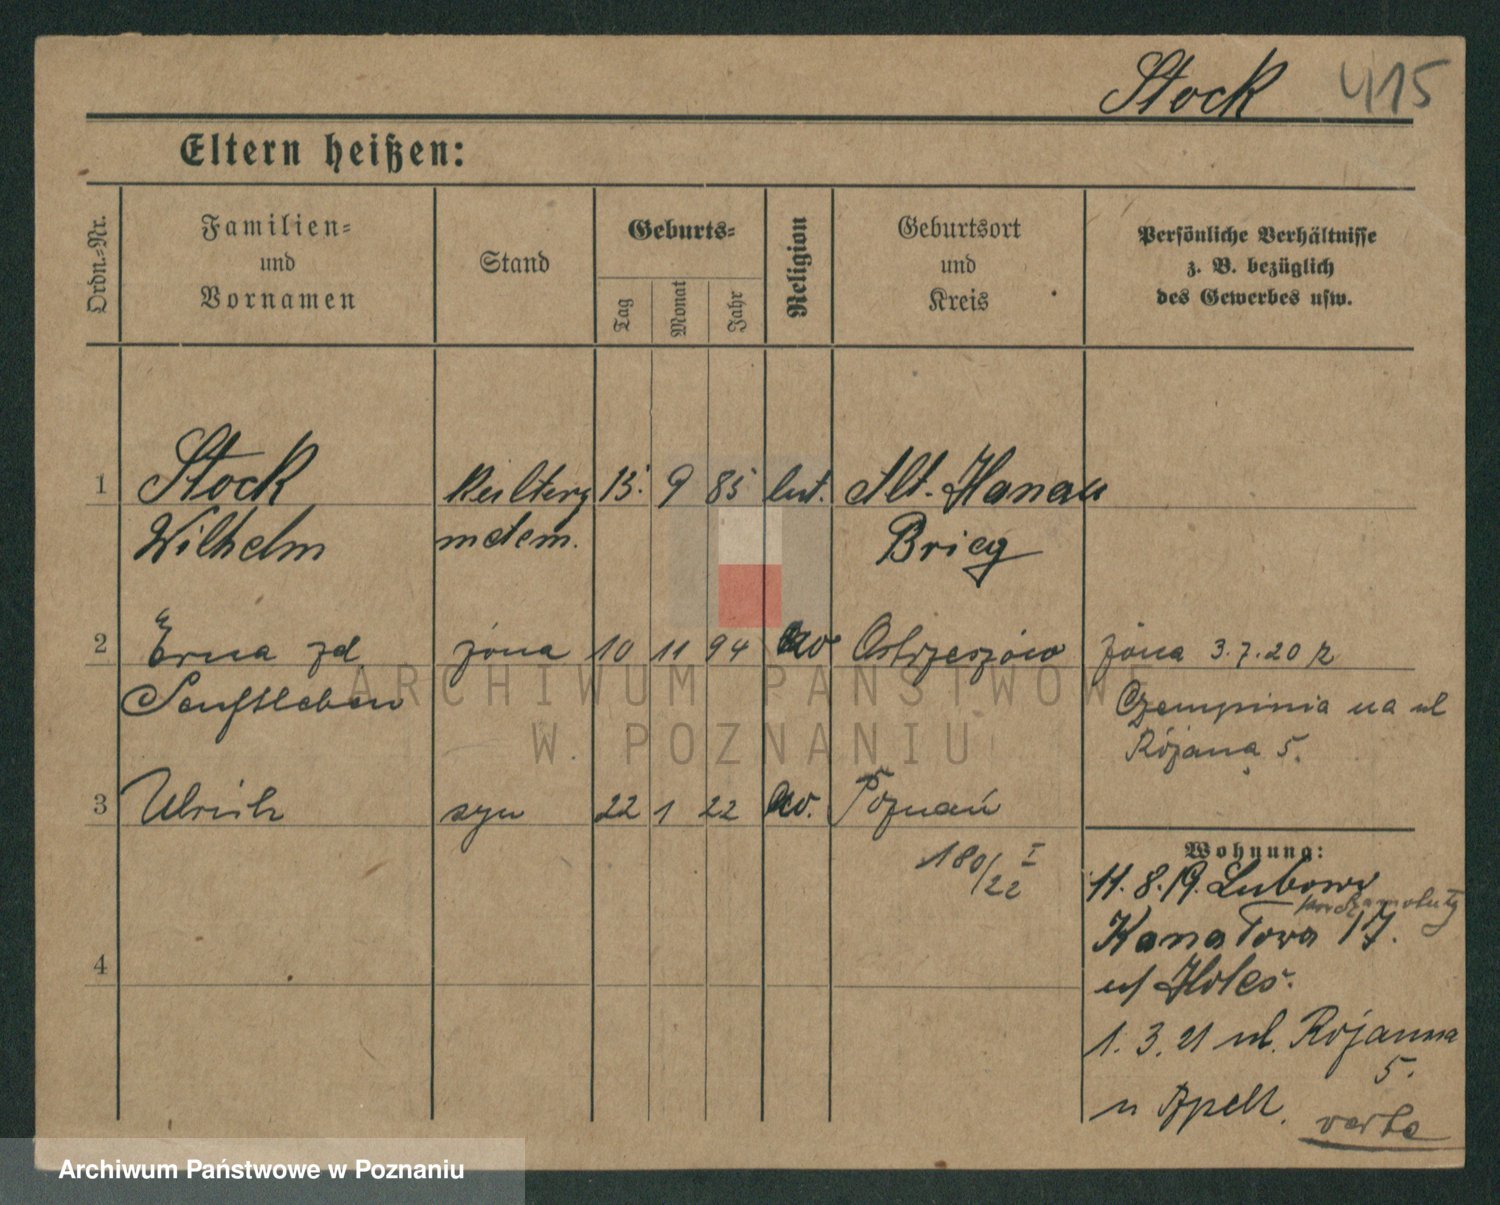 Stock 415
Eltern heißen:
Ordn.-Nr.
Familien- und Vornamen
Stand
Geburts-
Tag
Monat
Jahr
Religion
Geburtsort und Kreis
Persönliche Verhältnisse z. B. bezüglich des Gewerbes usw.
1 Stock 15. 9 85 lut. Alt. Hanau
Wilhelm Brieg
2 Erna zd żona 10 11 94 Ostrzeszów żona 3.7.20 z
Senftleben Czempinia na ul
Różana 5.
3 Ulrich syn 22 1 22 Poznań
180/22 I
Wohnung:
11.8.19. Lubowo
Kanałowa 17.
4
1.3.21 ul. Różanna
5.
u Apelt.
verte
ARCHIWUM PAŃSTWOWE
W POZNANIU
Archiwum Państwowe w Poznaniu